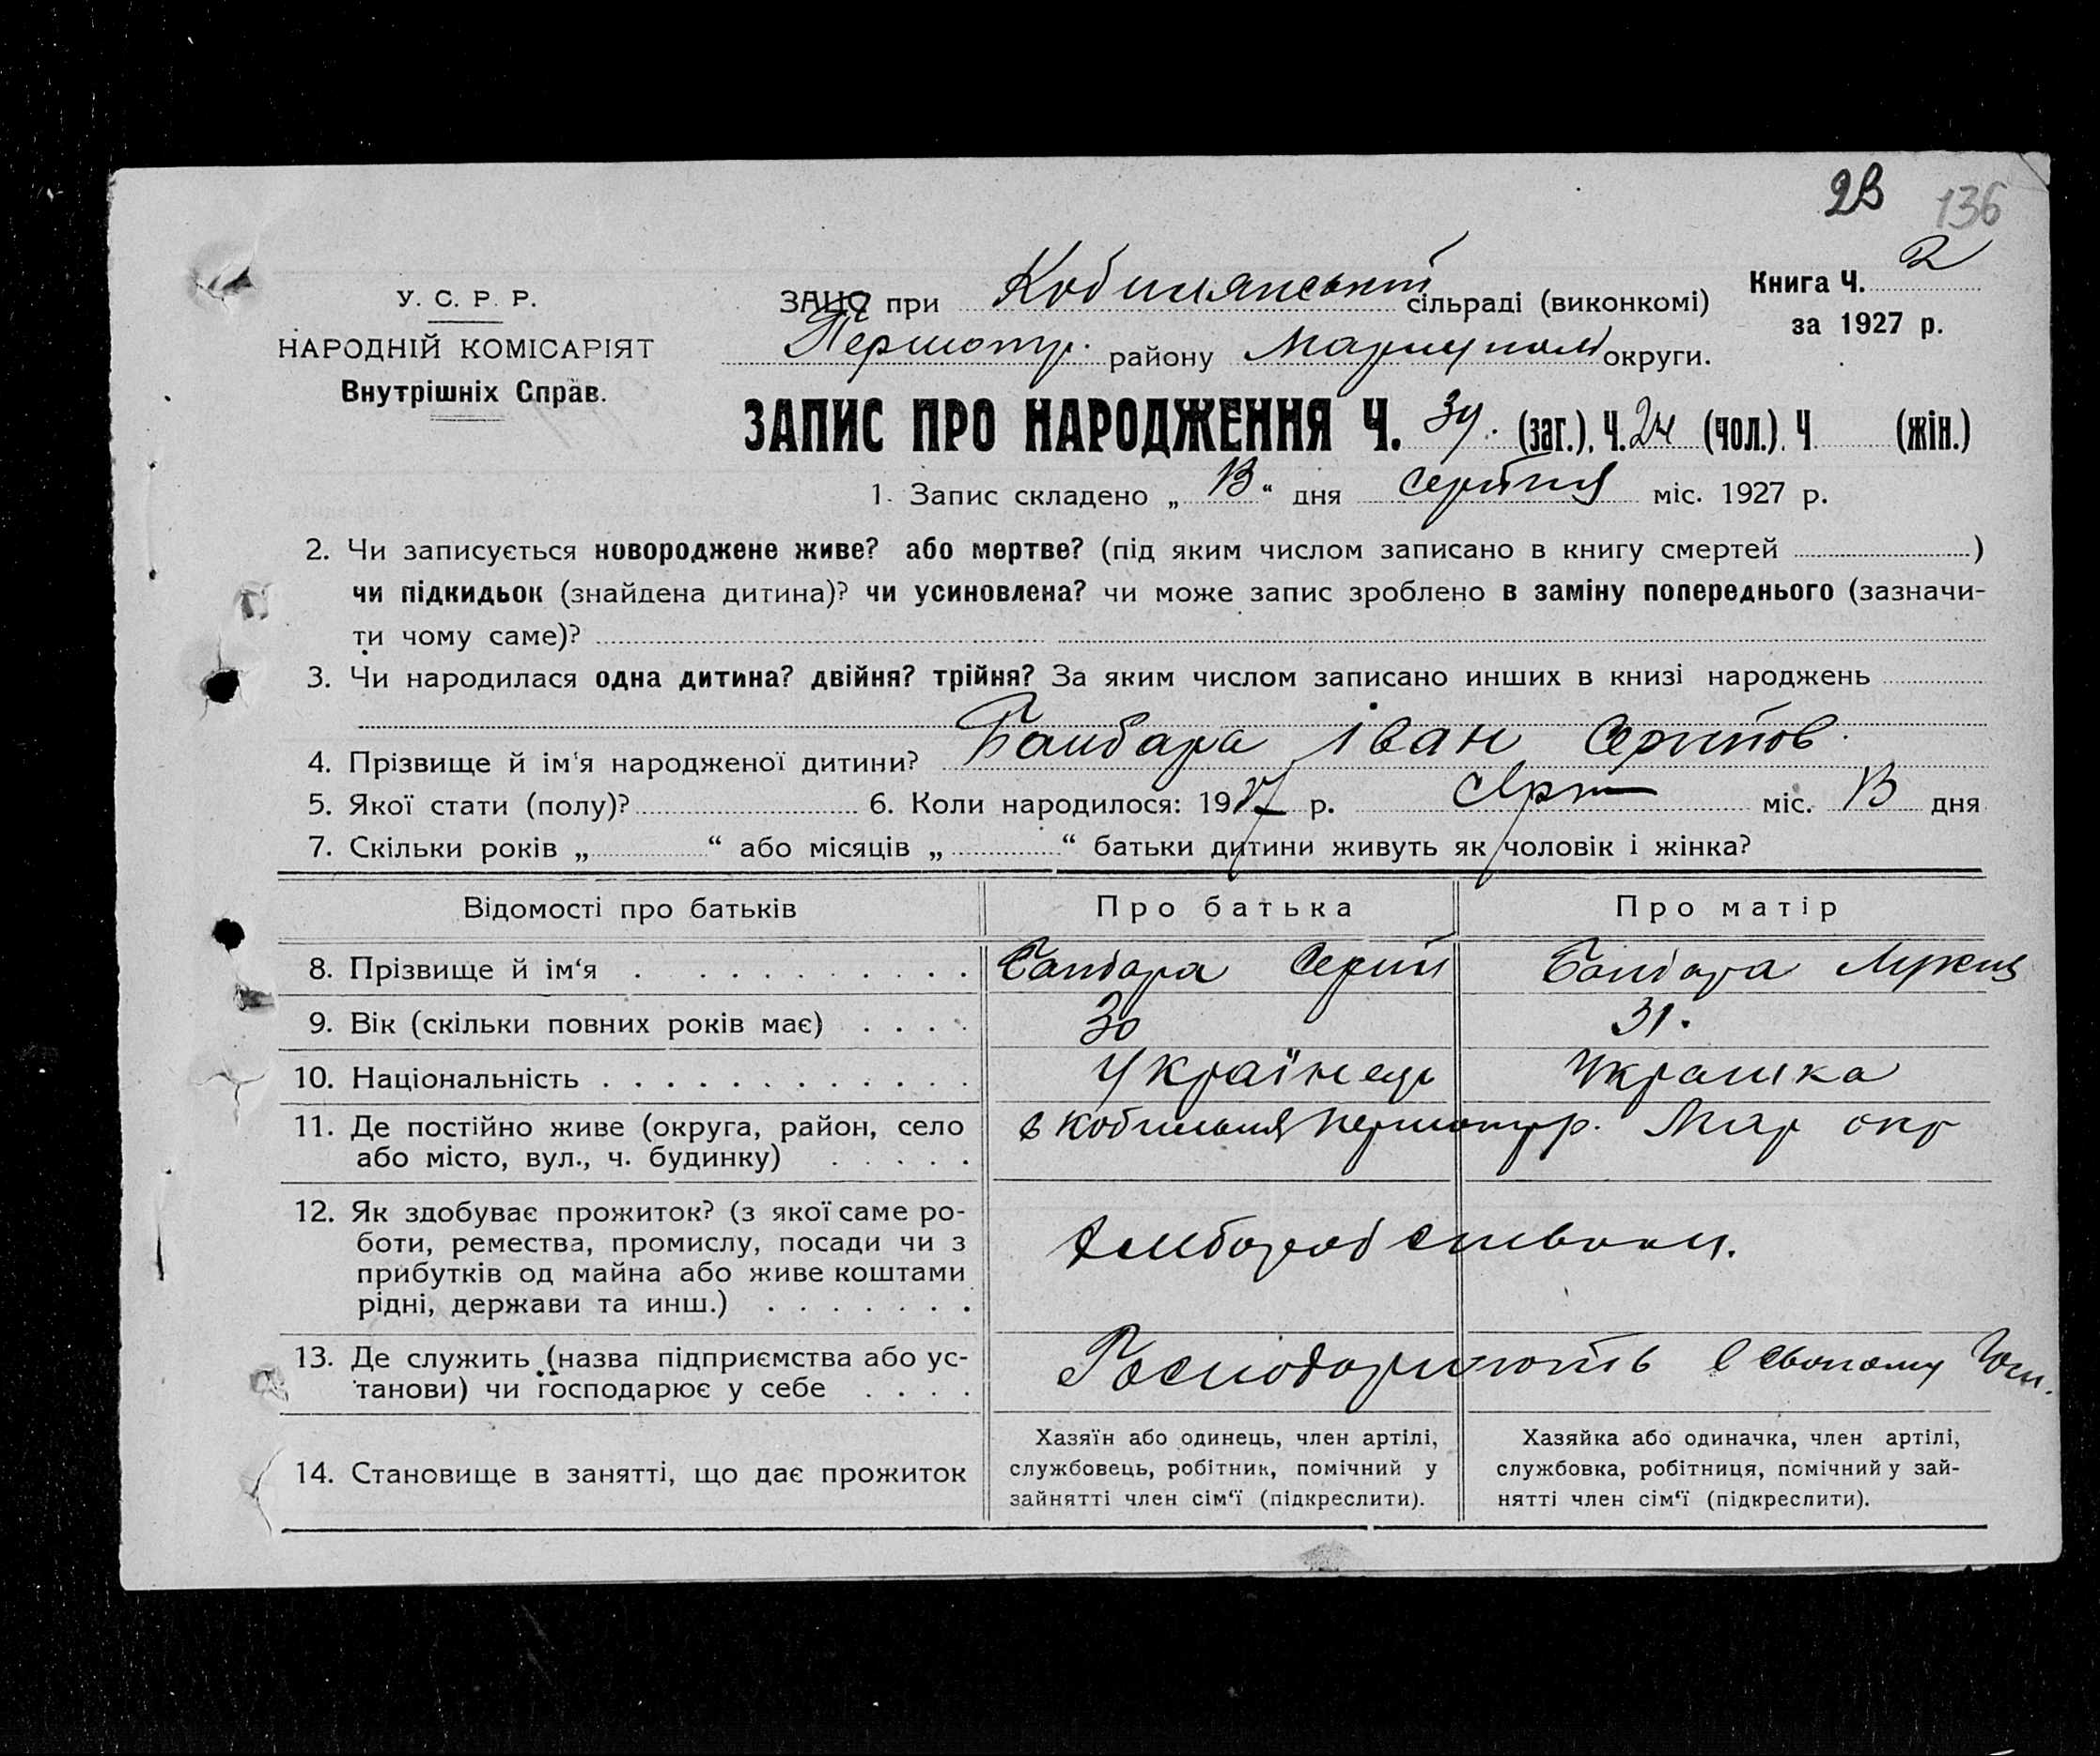 136
У. С. Р. Р.
НАРОДНІЙ КОМІСАРІЯТ
Внутрішніх Справ.
ЗАЦС при Кобилянській сільраді (виконкомі)
Першотр. району Маріупол округи.
Книга Ч. 2
за 1927 р.
ЗАПИС ПРО НАРОДЖЕННЯ Ч. (заг.), Ч. 24 (чол.). Ч (жін.)
1. Запис складено „ “ дня серпня міс. 1927 р.
2. Чи записується новороджене живе? або мертве? (під яким числом записано в книгу смертей )
чи підкидьок (знайдена дитина)? чи усиновлена? чи може запис зроблено в заміну попереднього (зазначи-
ти чому саме)?
3. Чи народилася одна дитина? двійня? трійня? За яким числом записано инших в книзі народжень
4. Прізвище й ім‘я народженої дитини? Іван
5. Якої стати (полу)? 6. Коли народилося: 1927 р. міс. дня
7. Скільки років „ “ або місяців „ “ батьки дитини живуть як чоловік і жінка?
Відомості про батьків Про батька Про матір
8. Прізвище й ім‘я
9. Вік (скільки повних років має) 30 31.
10. Національність Українець Украінка
11. Де постійно живе (округа, район, село
або місто, вул., ч. будинку) Мар окр
12. Як здобуває прожиток? (з якої саме ро-
боти, ремества, промислу, посади чи з
прибутків од майна або живе коштами
рідні, держави та инш.)
13. Де служить (назва підприємства або ус-
танови) чи господарює у себе Господарюють в своєму
14. Становище в занятті, що дає прожиток
Хазяїн або одинець, член артілі,
службовець, робітник, помічний у
зайнятті член сім‘ї (підкреслити).
Хазяйка або одиначка, член артілі,
службовка, робітниця, помічний у зай-
нятті член сім‘ї (підкреслити).